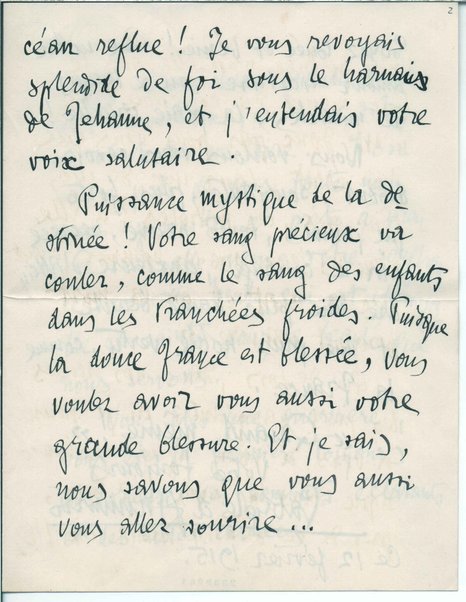 2
céan reflue ! Je vous revoyais
splendide de foi sous le harnais
de Jehanne, et j'entendais votre
voix salutaire.
Puissance mystique de la de
stinée ! Votre sang précieux va
couler, comme le sang des enfants
dans les tranchées froides. Puisque
la douce France est blessée, vous
voulez avoir vous aussi votre
grande blessure. Et je sais,
nous savons que vous aussi
vous allez sourire...
Ce 12 février 1915.